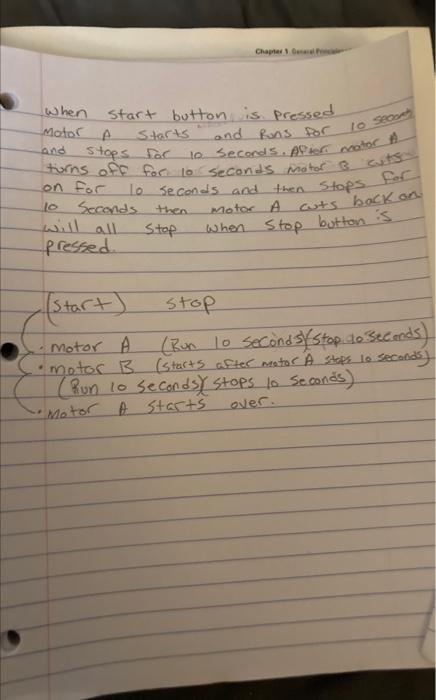 Chapter 1 General Principles
when start button is pressed
Motor A starts and Runs for 10 seconds
and stops for 10 seconds. After motor A
turns off for 10 seconds Motor B cuts
on for 10 seconds and then stops for
10 seconds then Motor A cuts back on
will all stop when stop button is
pressed.
(start) stop
• Motor A (Run 10 seconds)(stop 10 seconds)
• motor B (starts after motor A stops 10 seconds)
(Run 10 seconds)(stops 10 seconds)
• Motor A starts over.